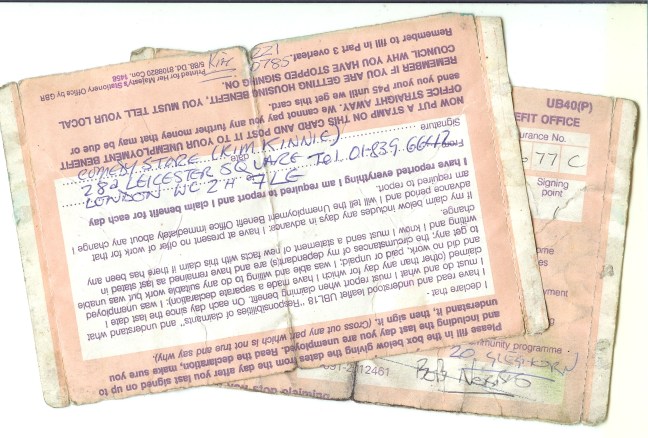 Please fill in the box below giving the dates from the day after you last signed on up to
and including the last day you are unemployed. Read the declaration, make sure you
understand it, then sign it. (Cross out any part which is not true and say why).
I declare that -
I have read and understood leaflet UBL18 "Responsibilities of claimants", and understand what
I must do and what I must report when claiming benefit. On each day since the last date I
claimed (other than any day for which I have made a separate declaration), I was unemployed
and did no work, paid or unpaid; I was able and willing to do any suitable work but was unable
to get any; the circumstances of my dependant(s) are and have remained as last stated in
writing and I know I must send a statement of new facts with this claim if there has been any
change.
If my claim below includes any days in advance: I have at present no offer of work for that
advance period and I will tell the Unemployment Benefit Office immediately about any change I
am required to report.
I have reported everything I am required to and I claim benefit for each day
From
date
Signature
COMEDY STORE (KIM KINNIE)
28a LEICESTER SQUARE Tel 01.839.6642
LONDON WC2H 7LE
NOW PUT A STAMP ON THIS CARD AND POST IT TO YOUR UNEMPLOYMENT BENEFIT
OFFICE STRAIGHT AWAY. We cannot pay you any further money that may be due or
send your P45 until we get this card.
REMEMBER IF YOU ARE GETTING HOUSING BENEFIT, YOU MUST TELL YOUR LOCAL
COUNCIL WHY YOU HAVE STOPPED SIGNING ON.
Remember to fill in Part 3 overleaf.
Printed for Her Majesty's Stationery Office by GBR
5/88. Dd. 8108820 Con. 1456
0785
UB40(P)
EFIT OFFICE
urance No.
77 C
Signing
point
ome
yment
mmunity programme
2112461